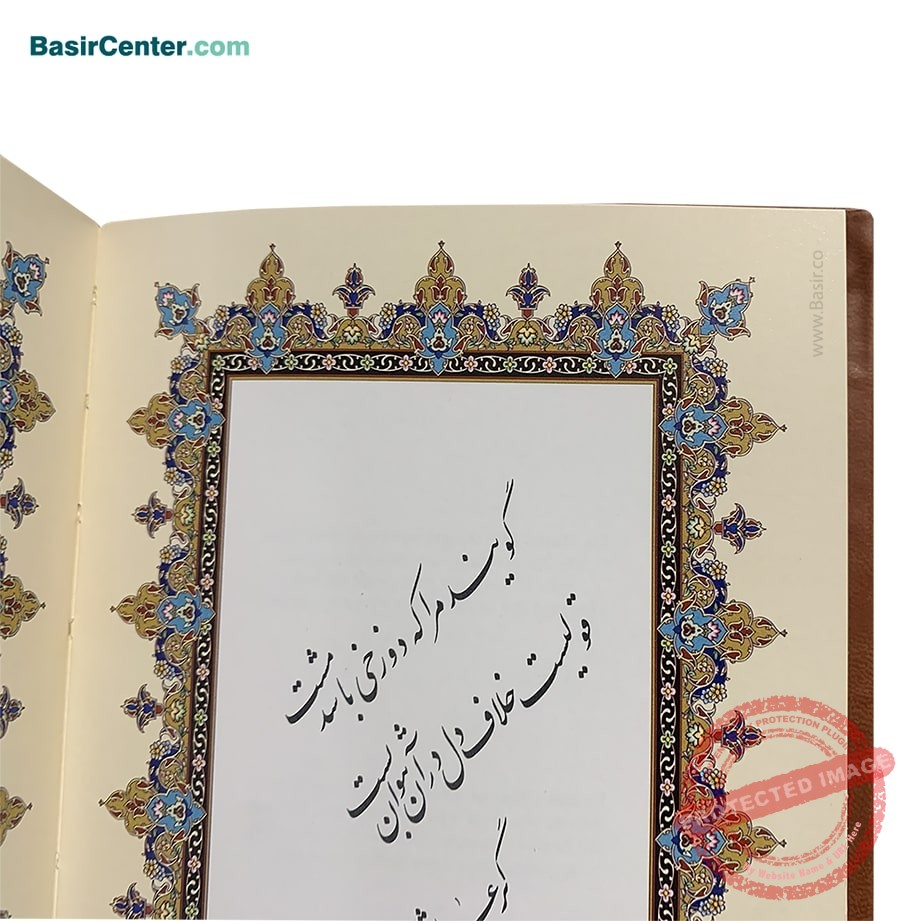 BasirCenter.com
www.Basir.co
گویند مرا که دوزخی باشد مست
قولیست خلاف دل در آن نتوان بست
گر
PROTECTION PLUGIN
PROTECTED IMAGE
My Website Name & URL Here